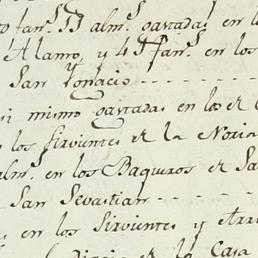 fan.s 11 alm.s gastadas en lo
Alamo, y 4 fan.s en los
San Ygnacio - - - -
si mismo gastadas en los de
los Sirvientes de la Noria
alm.s en los Baqueros de Sa
San Sevastian - - -
s en los Sirvientes y Arr
de la Casa